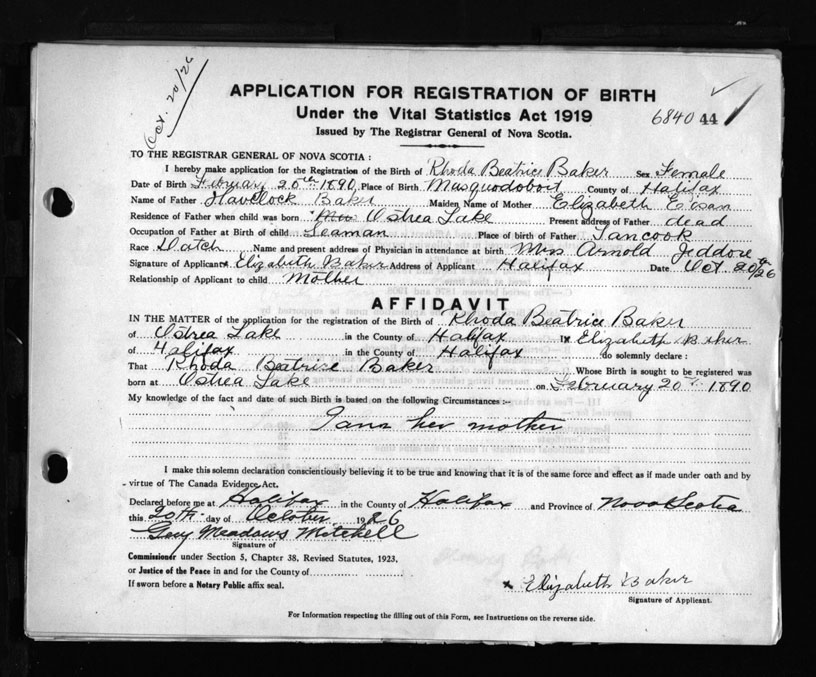 Oct. 20/26
APPLICATION FOR REGISTRATION OF BIRTH
Under the Vital Statistics Act 1919
6840 44
Issued by The Registrar General of Nova Scotia.
TO THE REGISTRAR GENERAL OF NOVA SCOTIA :
I hereby make application for the Registration of the Birth of Rhoda Beatrice Baker Sex Female
Date of Birth February 20th 1890 Place of Birth Masquodoboit County of Halifax
Name of Father Havelock Baker Maiden Name of Mother Elizabeth
Residence of Father when child was born Ostrea Lake Present address of Father dead
Occupation of Father at Birth of child Seaman Place of birth of Father Tancook
Race Dutch Name and present address of Physician in attendance at birth Mrs Arnold Jeddore
Signature of Applicant x Elizabeth Baker Address of Applicant Halifax Date Oct 20th/26
Relationship of Applicant to child Mother
AFFIDAVIT
IN THE MATTER of the application for the registration of the Birth of Rhoda Beatrice Baker
of Ostrea Lake in the County of Halifax I x Elizabeth Baker
of Halifax in the County of Halifax do solemnly declare :
That Rhoda Beatrice Baker Whose Birth is sought to be registered was
born at Ostrea Lake on February 20th 1890
My knowledge of the fact and date of such Birth is based on the following Circumstances :-
I am her mother
I make this solemn declaration conscientiously believing it to be true and knowing that it is of the same force and effect as if made under oath and by
virtue of The Canada Evidence Act.
Declared before me at Halifax in the County of Halifax and Province of Nova Scotia
this 20th day of October 1926
Meadows Mitchell
Signature of
Commissioner under Section 5, Chapter 38, Revised Statutes, 1923.
or Justice of the Peace in and for the County of
If sworn before a Notary Public affix seal.
x Elizabeth Baker
Signature of Applicant.
For Information respecting the filling out of this Form, see Instructions on the reverse side.